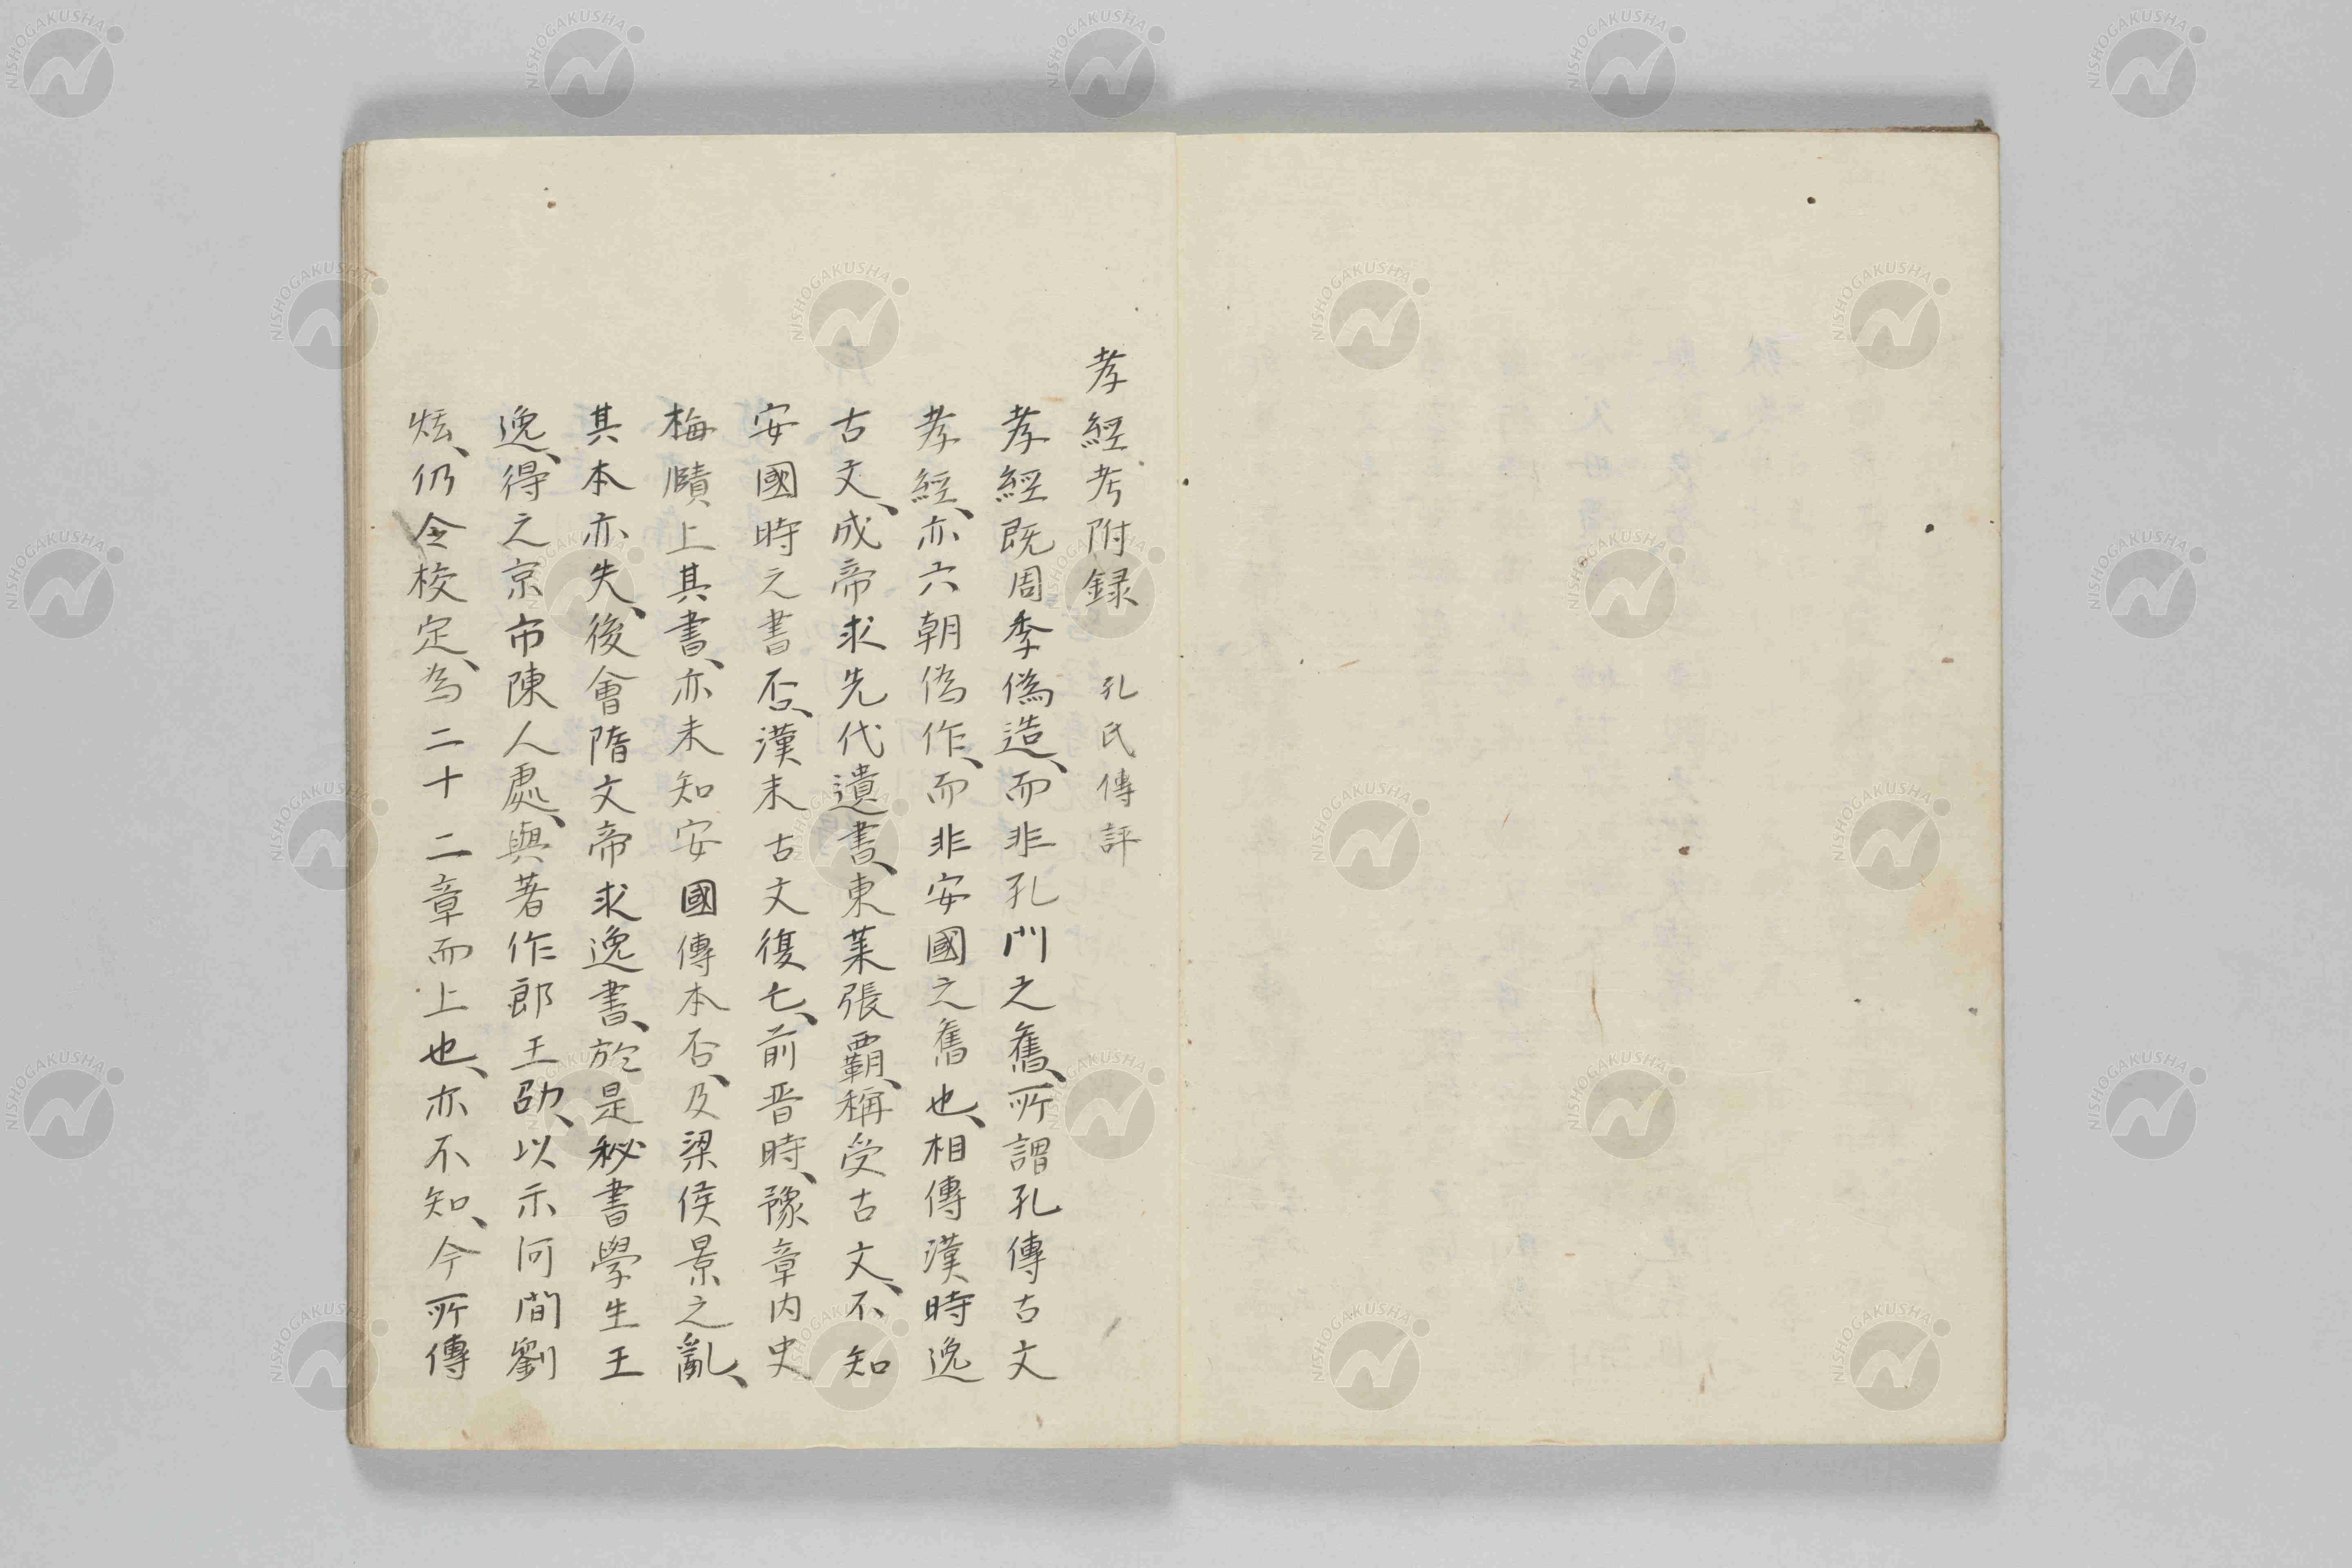 孝經考附録　孔氏傳評
孝經既周季僞造、而非孔門之舊、所謂孔傳古文
孝經、亦六朝僞作、而非安國之舊也、相傳漢時逸
古文、成帝求先代遺書、東萊張覇、稱受古文、不知
安國時之書否、漢末古文復亡、前晋時、豫章内史
梅賾上其書、亦未知安國傳本否、及梁侯景之亂、
其本亦失、後會隋文帝求逸書、於是秘書學生王
逸、得之京市陳人處、與著作郎王劭、以示河間劉
炫、仍令校定、為二十二章而上也、亦不知、今所傳
NISHOGAKUSHA